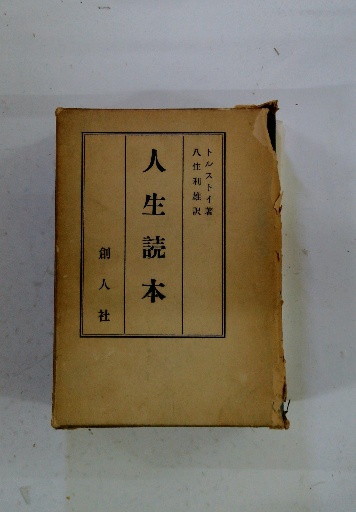 トルストイ著
八住利雄訳
人生読本
創人社